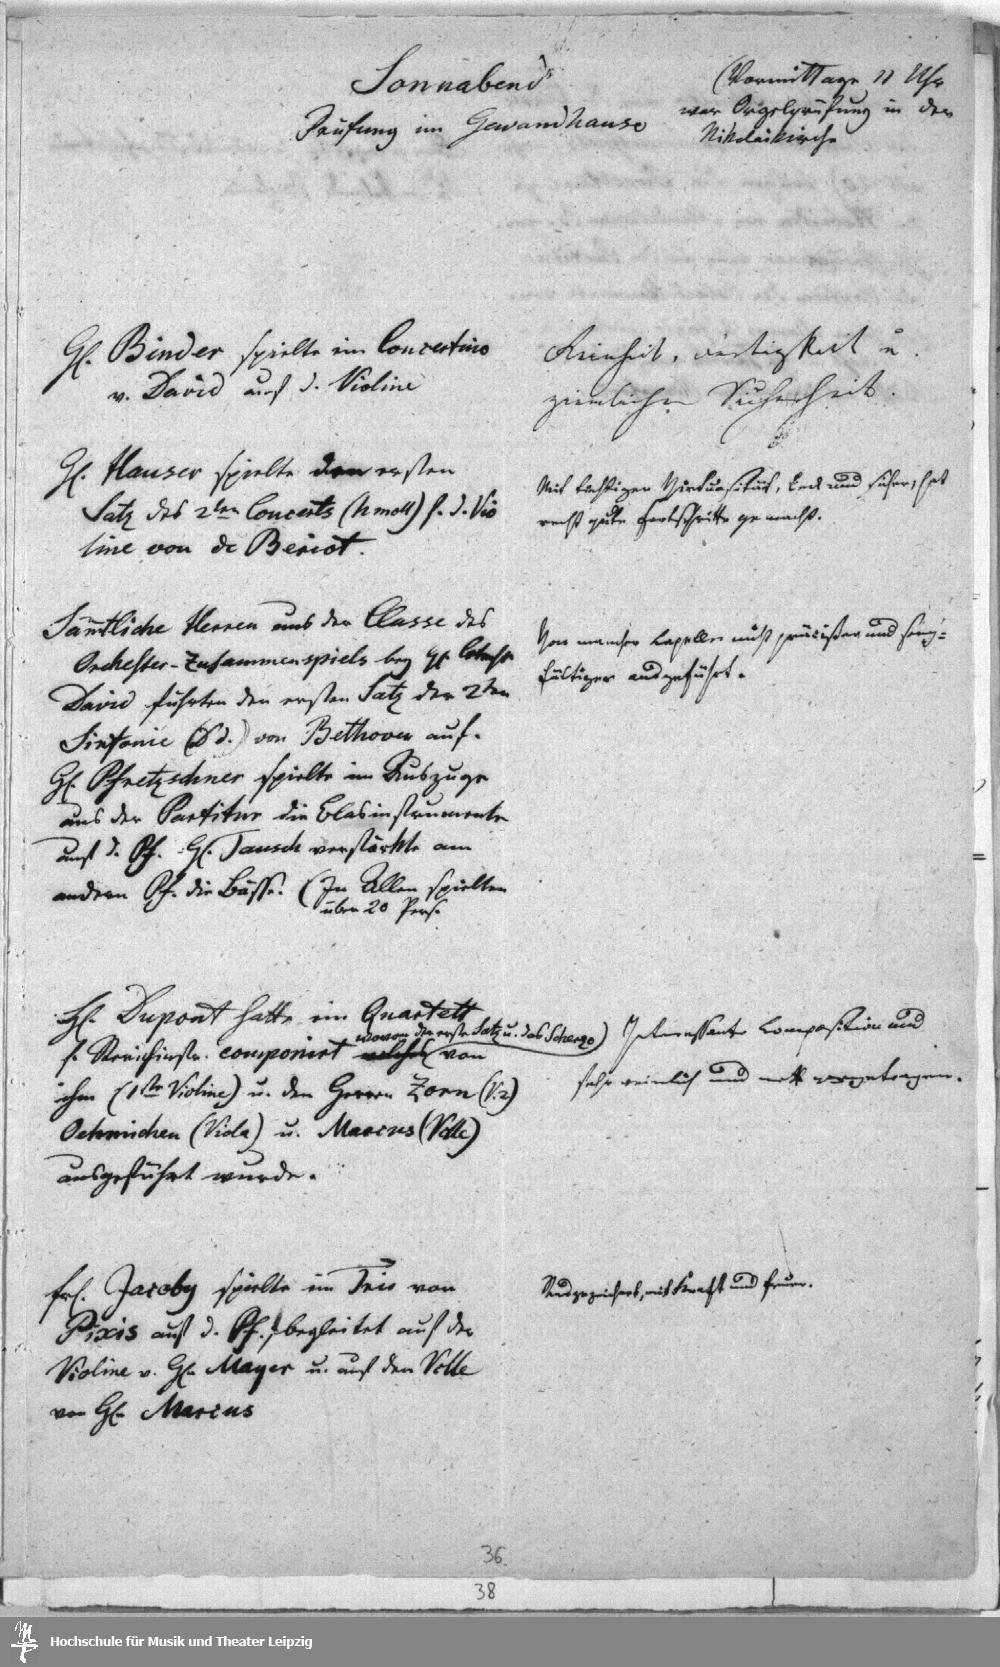 Sonnabend
Prüfung im Gewandhause
(Vormittage 11 Uhr
war Orgelprüfung in der
Nikolaikirche
H. Binder spielte im Concertino
v. David auf d. Violine
Reinheit, Fertigkeit u.
ziemliche Sicherheit.
H. Hauser spielte den ersten
Satz des 2ten Concerts (h moll) f. d. Vio
line von de Beriot.
Mit tüchtiger Virtuosität, keck und sicher, hat
recht gute Fortschritte gemacht.
Sämtliche Herren aus der Classe des
Orchester-Zusammenspiels bey H.
David führten den ersten Satz der 2ten
Sinfonie (D d.) von Bethoven auf.
H. Pfretzschner spielte im Auszuge
aus der Partitur die Blasinstrumente
auf d. Pf. H. Tausch verstärkte am
andern Pf. die Bässe. (In Allen spielten
über 20 Pers.
Von mancher Capelle nicht präciser und sorg-
fältiger ausgeführt.
H. Dupont hatte im Quartett
wovon der erste Satz u. das Scherzo)
f. Streichinstr. componirt welches von
ihm (1ste Violine) u. den Herren Zorn (V. 2)
Oehmichen (Viola) u. Marcus (Vclle)
ausgeführt wurde.
Interessante Composition und
sehr reinlich und nett vorgetragen.
Frl. Jacoby spielte im Trio von
Pixis auf d. Pf., begleitet auf der
Violine v. H. Mayer u. auf dem Vclle
von H. Marcus
Ausgezeichnet, mit Kraft und Feuer.
36.
38
Hochschule für Musik und Theater Leipzig